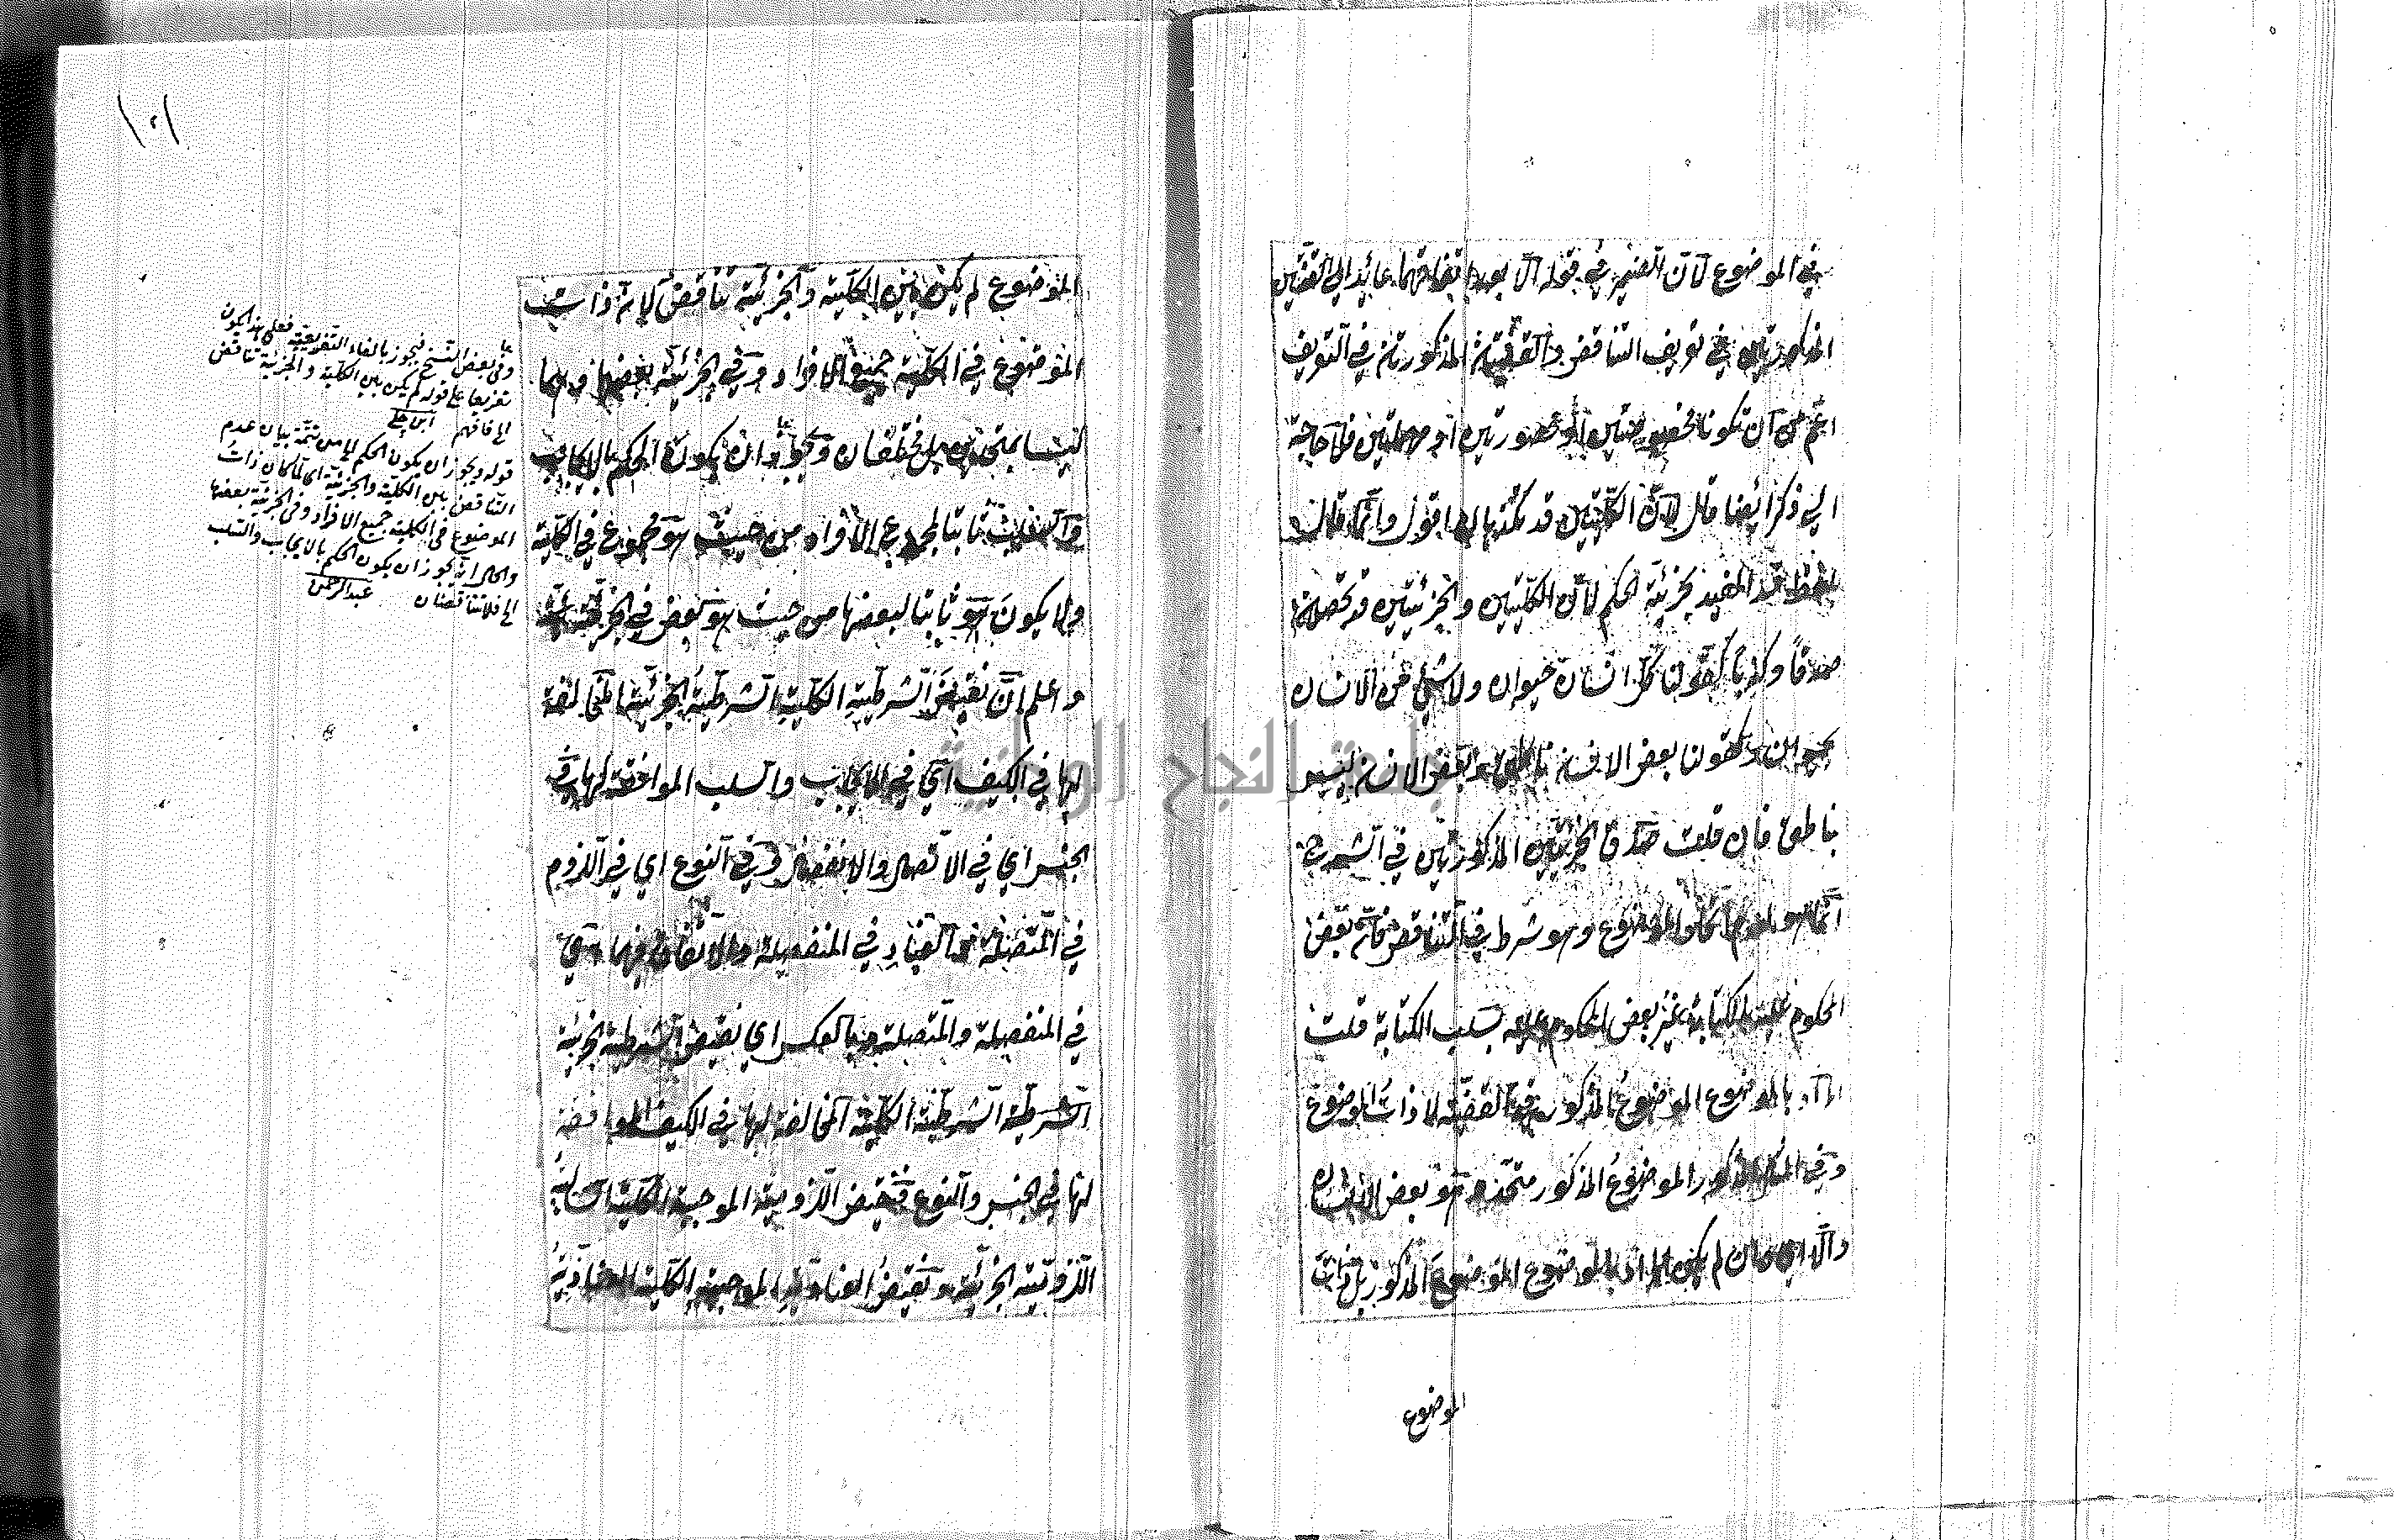 في الموضوع لان الضمير في قوله الا بعد اتفاقهما عائد الى القضيتين
المذكورتين في تعريف التناقض والقضية المذكورتة في التعريف
اعم من ان تكونا مخصوصتين او محصورتين او مهملتين فلا حاجة
الى ذكر ايضا قال لان الكليتين قد تكذبان اقول وانما قال
لفظ قد المفيد بجزئية الحكم لان الكليتين والجزئيتين قد تقتسمان
صدقا وكذبا كقولنا كل انسان حيوان ولا شئ من الانسان
بحيوان وكقولنا بعض الانسان ناطق وبعض الانسان ليس
بناطق فان قلت صدق الجزئيتين المذكورتين في الشرح
انما هو لعدم اتحاد الموضوع وهو شرط في التناقض فان بعض
المحكوم عليه بالكتابة غير بعض المحكوم عليه بسلب الكتابة قلت
المراد بالموضوع الموضوع المذكور في القضية لا ذات الموضوع
وفي المثال المذكور الموضوع المذكور متحد وهو بعض الانسان
والا اى وان لم يكن المراد بالموضوع الموضوع المذكور بل ذات
الموضوع
١٠١
الموضوع لم يكن بين الكلية والجزئية تناقض لان ذات
الموضوع في الكلية جميع الافراد وفي الجزئية بعضها وهما
ليسا بمتحدين بل مختلفان ويجوز ان يكون الحكم بالايجاب
والسلب ثابتا لمجموع الافراد من حيث هو مجموع في الكلية
ولا يكون هو ثابتا لبعضها من حيث هو بعض في الجزئية
واعلم ان نقيض الشرطية الكلية الشرطية الجزئية المخالفة
لها في الكيف اى في الايجاب والسلب الموافقة لها في
الجنس اى في الاتصال والانفصال وفي النوع اى في اللزوم
في المتصلة والعناد في المنفصلة والاتفاق فيهما اى
في المنفصلة والمتصلة وبالعكس اى نقيض الشرطية الجزئية
الشرطية الشرطية الكلية المخالفة لها في الكيف الموافقة
لها في الجنس والنوع فنقيض اللزومية الموجبة الكلية السالبة
اللزومية الجزئية ونقيض العنادية الموجبة الكلية العنادية
وفى بعض النسخ فيجوز بالفاء التفريعية فعلى هذا يكون
تفريعا على قوله لم يكن بين الكلية والجزئية تناقض
الخ فافهم ابن حلى
قوله ويجوز ان يكون الحكم الخ من تتمة بيان عدم
التناقض بين الكلية والجزئية اى لما كان ذات
الموضوع فى الكلية جميع الافراد وفى الجزئية بعضها
والحال انه يجوز ان يكون الحكم بالايجاب والسلب
الخ فلا تتناقضان عبد الرحمن
جامعة النجاح الوطنية